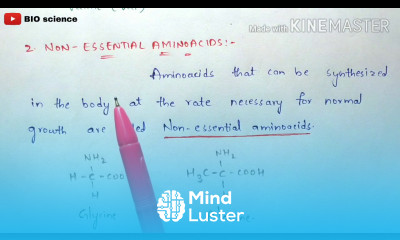 BIO science
Made with KINEMASTER
2. NON-ESSENTIAL AMINOACIDS:-
Aminoacids that can be synthesized
in the body at the rate necessary for normal
growth are Non-essential aminoacids.
NH2 NH2
H-C-COO H3C-C-COOH
H
Glycine
Mind
Luster